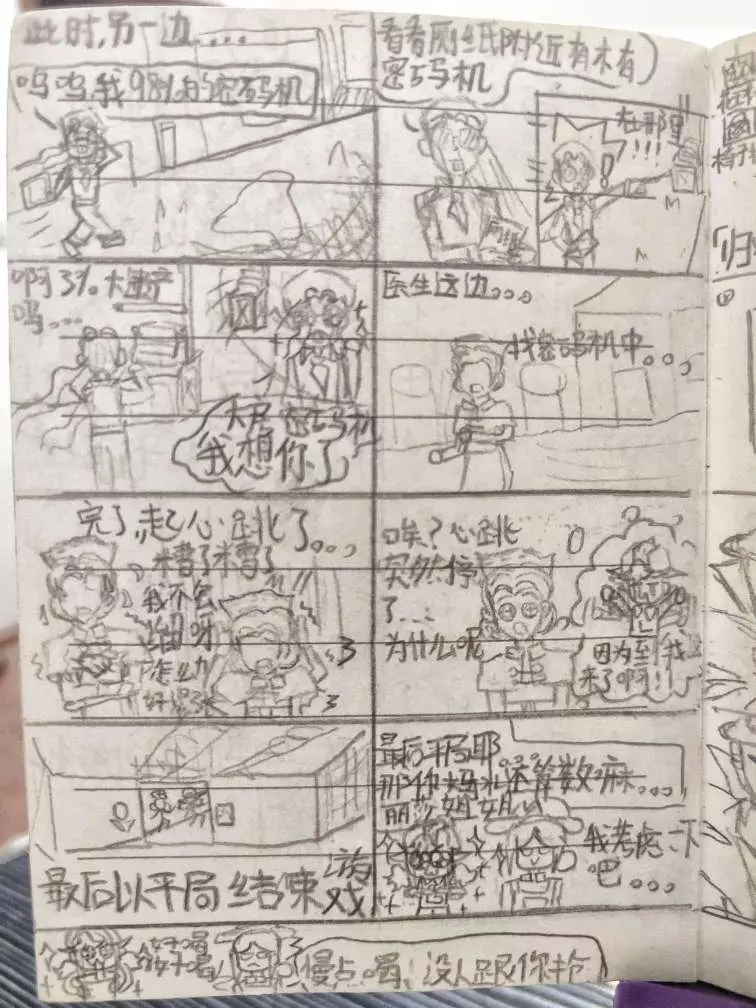 此时,另一边....
呜呜,我98%的密码机
看看厕纸附近有木有
密码机
在那里
!!!
啊3%.大
吗...
密码机
我想你了
医生这边。。。
找密码机中。。。
完了,起心跳了。。。
糟了糟了
我不会
遛呀
怎么办
好紧张
唉?心跳
突然停
了...
为什么呢
因为到我
来了啊!!
最后以平局结束游戏
最后平局耶。
那你奶还算数嘛...
丽莎姐姐
我考虑一下
吧。。。
好喝
好喝
慢点喝,没人跟你抢